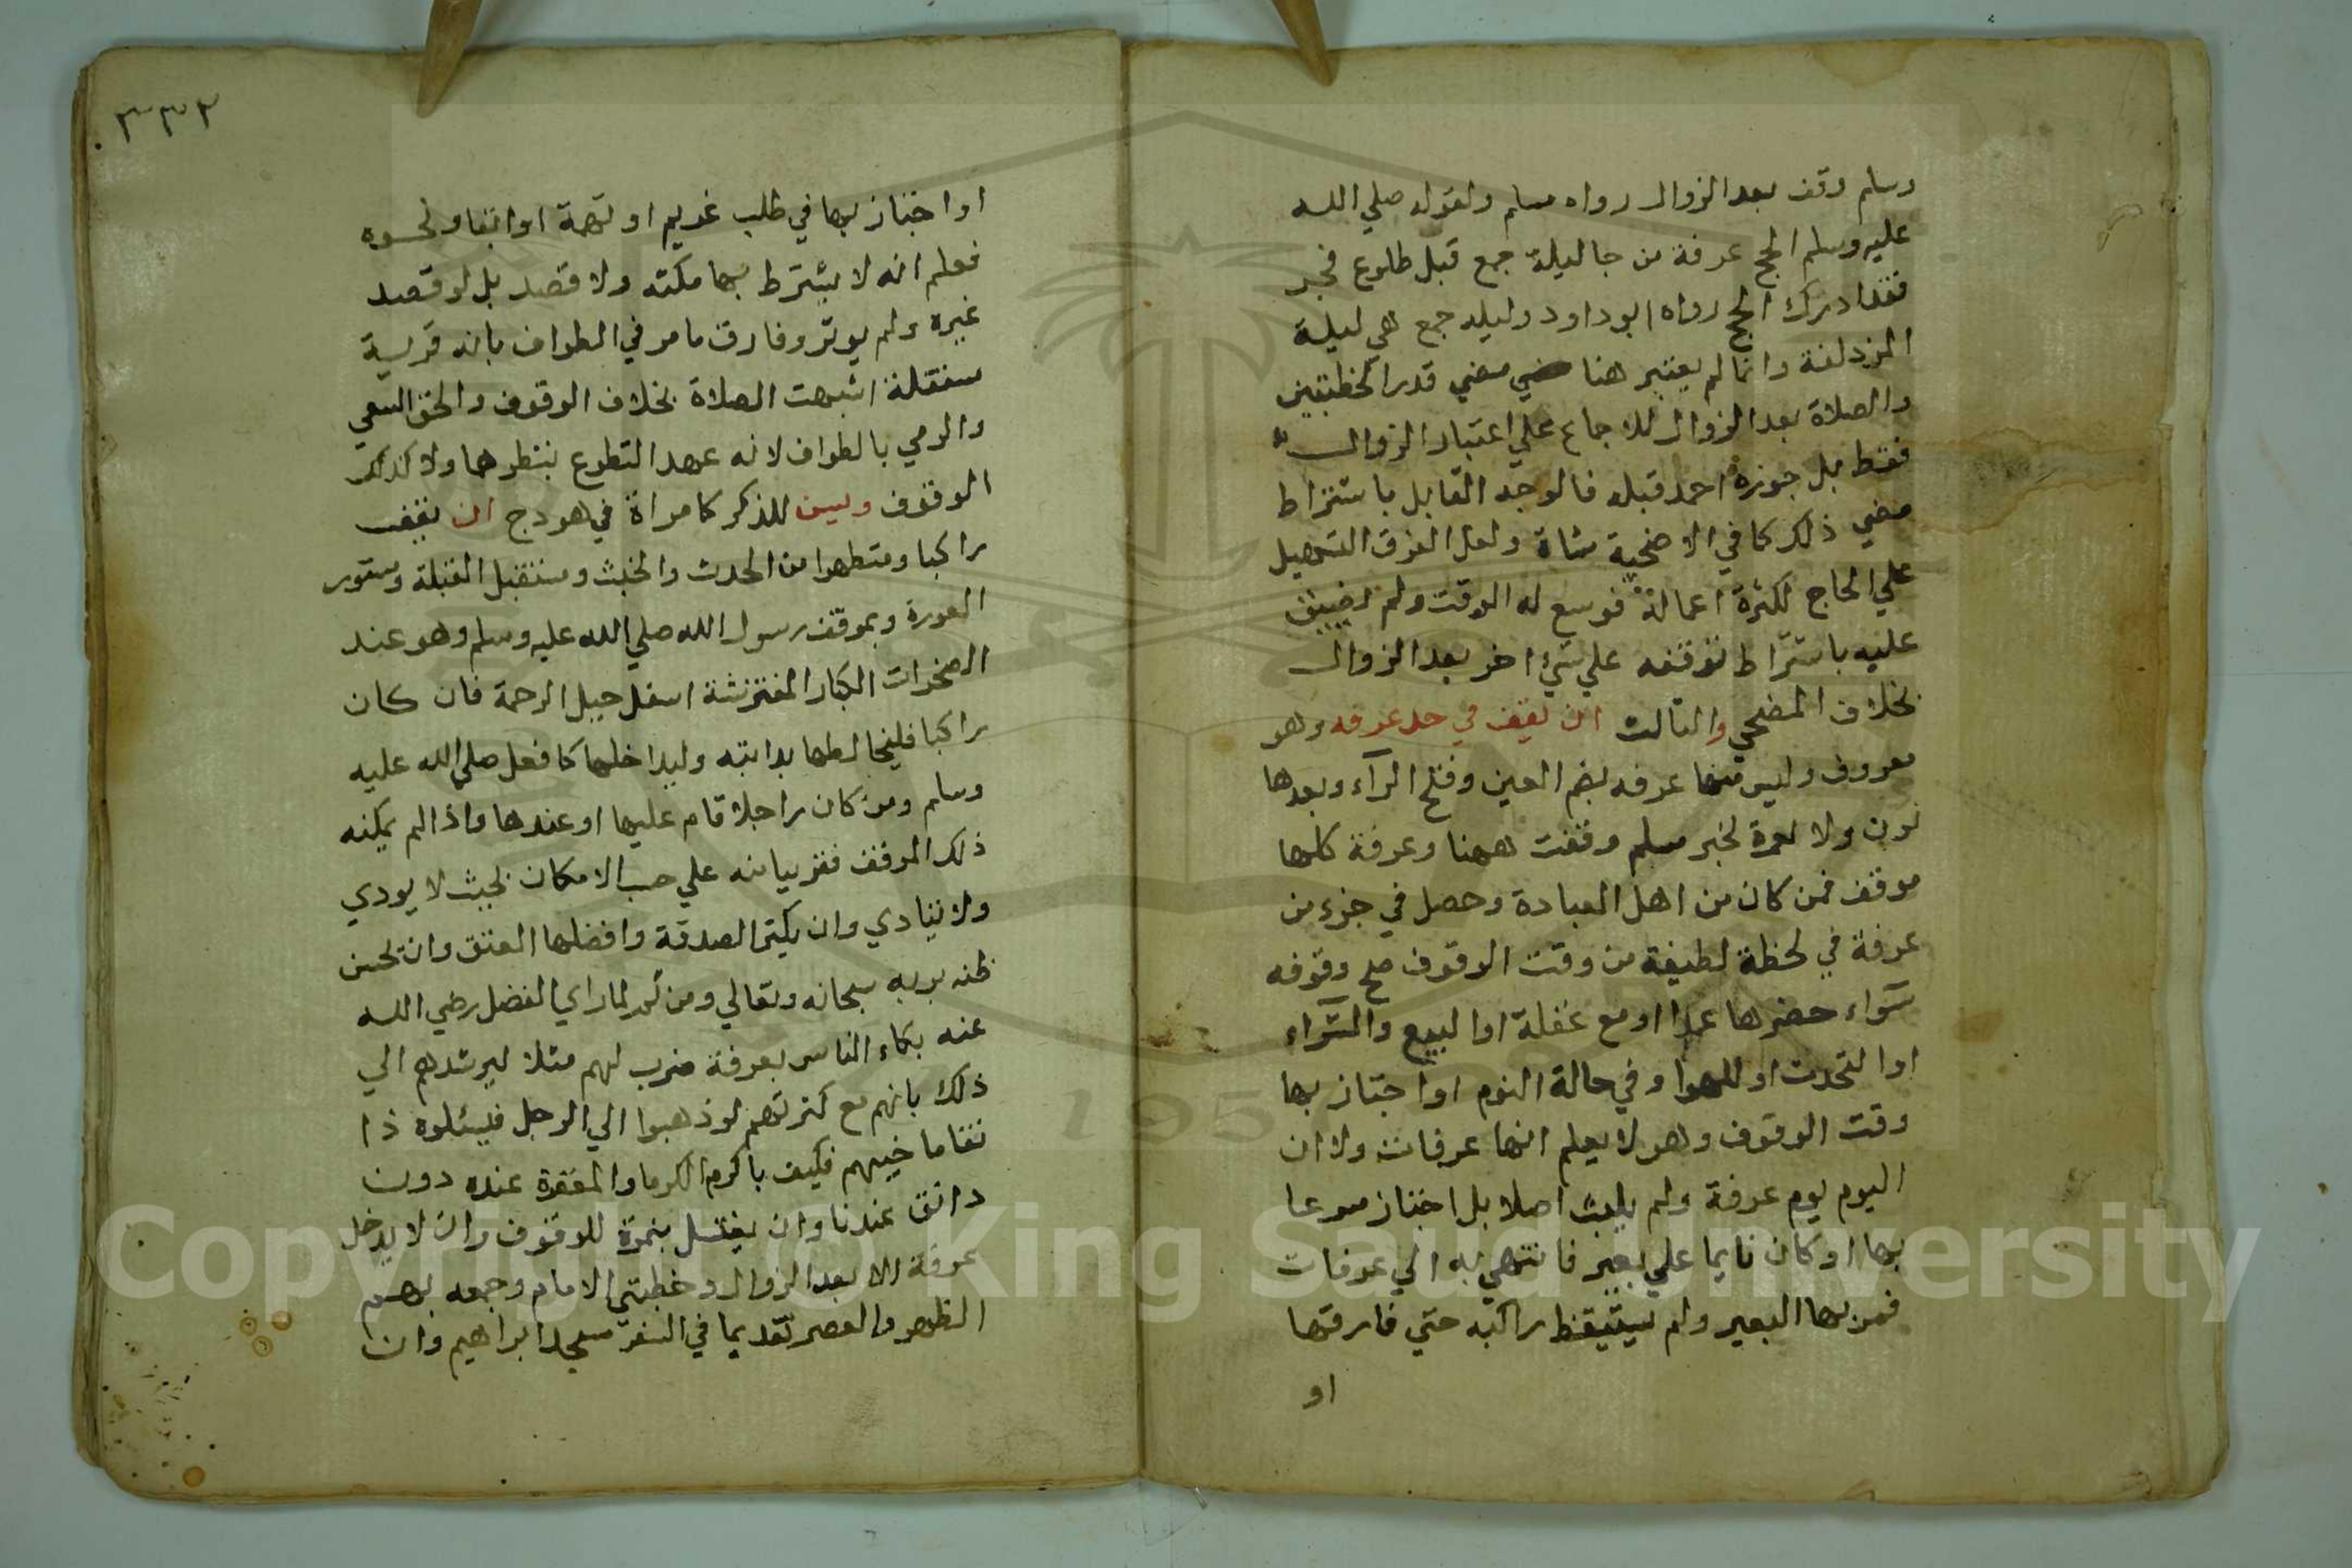 وسلم وقف بعد الزوال رواه مسلم ولقوله صلي الله
عليه وسلم الحج عرفة من جا ليلة جمع قبل طلوع فجر
فقد ادرك الحج رواه ابو داود وليلة جمع هي ليلة
المزدلفة وانما لم يعتبر هنا مضي قدر الخطبتين
والصلاة بعد الزوال للاجماع علي اعتبار الزوال
فقط بل جوزه احمد قبله فالوجه القايل باشتراط
مضي ذلك كما في الاضحية شاة ولعل الفرق التسهيل
علي الحاج لكثرة اعماله فوسع له الوقت ولم يضيق
عليه باشتراط توقفه علي شيء اخر بعد الزوال
بخلاف المضحي والثالث ان يقف في حد عرفه وهو
معروف وليس منها عرفه بضم العين وفتح الرآء وبعدها
نون ولا نمرة لخبر مسلم وقفت ههنا وعرفة كلها
موقف فمن كان من اهل العبادة وحصل في جزء من
عرفة في لحظة لطيفة من وقت الوقوف صح وقوفه
سوآء حضرها عمدا او مع غفلة او البيع والشرآء
او التحدث او اللهو او في حالة النوم او اجتاز بها
وقت الوقوف وهو لا يعلم انها عرفات ولا ان
اليوم يوم عرفة ولم يلبث اصلا بل اجتاز مسرعا
بها او كان نايما علي بعير فانتهي به الي عرفات
فمر بها البعير ولم يستيقظ راكبه حتي فارقها
او
٣٣٢
او اجتاز بها في طلب غريم او بهيمة او ابقا ونحوه
فعلم انه لا يشترط بها مكثه ولا قصد بل لو قصد
غيره لم يوثر وفارق ما مر في الطواف بانه قربة
مستقلة اشبهت الصلاة بخلاف الوقوف والحق السعي
والرمي بالطواف لانه عهد التطوع بنظرها ولا كذلك
الوقوف ويسن للذكر كامراة في هودج ان يقف
راكبا ومتطهرا من الحدث والخبث ومستقبل القبلة ومستور
العورة وبموقف رسول الله صلي الله عليه وسلم وهو عند
الصخرات الكبار المفترشة اسفل جبل الرحمة فان كان
راكبا فليخالطها بدابته وليداخلها كما فعل صلي الله عليه
وسلم ومن كان راجلا قام عليها او عندها واذا لم يمكنه
ذلك الموقف فقريبا منه علي حسب الامكان بحيث لا يوذي
ولا يتاذي وان يكثر الصدقة وافضلها العتق وان يحسن
ظنه بربه سبحانه وتعالي ومن ثم لما راي الفضل رضي الله
عنه بكاء الناس بعرفة ضرب لهم مثلا ليرشدهم الي
ذلك بانهم مع كثرتهم لو ذهبوا الي الرجل فيسئلوه دا
نقا ما خيبهم فكيف باكرم الكرما والمغفرة عنده دون
دانق عندنا وان يغتسل بنمرة للوقوف وان لا يدخل
عرفة الا بعد الزوال وخطبتي الامام وجمعه بهم
الظهر والعصر تقديما في السفر بمسجد ابراهيم وان
Copyright © King Saud University
1957